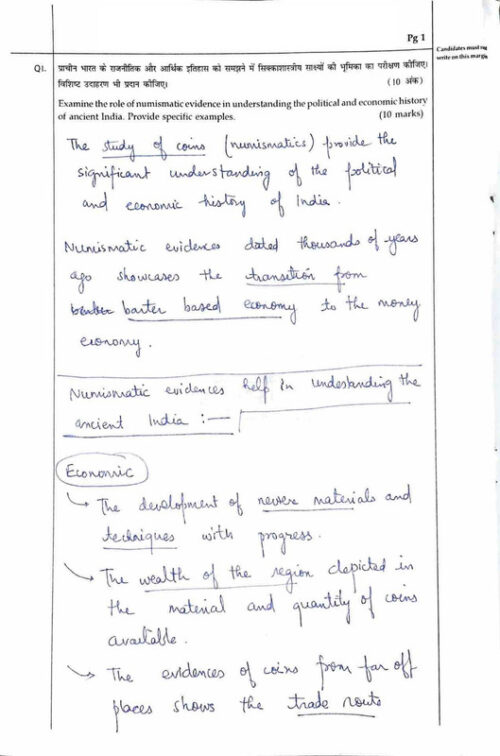 Pg 1
Candidates must not
write on this margin
Q1. प्राचीन भारत के राजनीतिक और आर्थिक इतिहास को समझने में सिक्काशास्त्रीय साक्ष्यों की भूमिका का परीक्षण कीजिए।
विशिष्ट उदाहरण भी प्रदान कीजिए। (10 अंक)
Examine the role of numismatic evidence in understanding the political and economic history
of ancient India. Provide specific examples. (10 marks)
The study of coins (numismatics) provide the
significant understanding of the political
and economic history of India.
Numismatic evidences dated thousands of years
ago showcases the transition from
barter based economy to the money
economy.
Numismatic evidences help in undestanding the
ancient India :—
Economic
↳ The development of newer materials and
techniques with progress.
↳ The wealth of the region depicted in
the material and quantity of coins
available.
↳ The evidences of coins from far off
places shows the trade routs